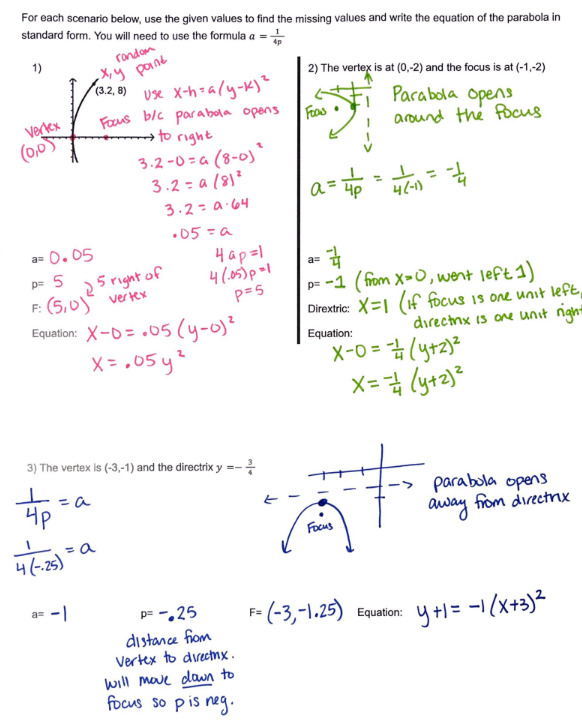 For each scenario below, use the given values to find the missing values and write the equation of the parabola in
standard form. You will need to use the formula a = 1/4p
1)
random
x, y point
(3.2, 8)
Vertex
(0,0)
Focus
use x-h = a(y-k)²
b/c parabola opens
to right
3.2-0 = a (8-0)²
3.2 = a (8)²
3.2 = a·64
.05 = a
a= 0.05
p= 5
F: (5,0)
5 right of
vertex
4ap=1
4(.05)p=1
p=5
Equation: X-0 = .05 (y-0)²
X = .05y²
2) The vertex is at (0,-2) and the focus is at (-1,-2)
Focus
Parabola opens
around the focus
a = 1/4p = 1/4(-1) = -1/4
a= -1/4
p= -1 (from x=0, went left 1)
Dirextric: X=1 (if focus is one unit left,
directrix is one unit right
Equation:
X-0 = -1/4 (y+2)²
X = -1/4 (y+2)²
3) The vertex is (-3,-1) and the directrix y = -3/4
1/4p = a
1/4(-.25) = a
Focus
parabola opens
away from directrix
a= -1
p= -.25
distance from
vertex to directrix.
will move down to
focus so p is neg.
F= (-3,-1.25)
Equation: y+1 = -1(x+3)²